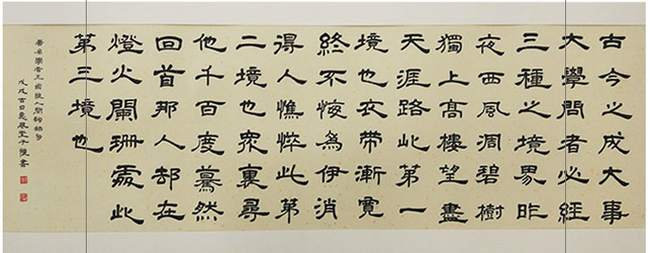 古今之成大事
大學問者必經
三種之境界昨
夜西風凋碧樹
獨上高樓望盡
天涯路此第一
境也衣帶漸寬
終不悔為伊消
得人憔悴此第
二境也眾裏尋
他千百度驀然
回首那人却在
燈火闌珊處此
第三境也
學者王國維人間詞話句
戊戌吉日書